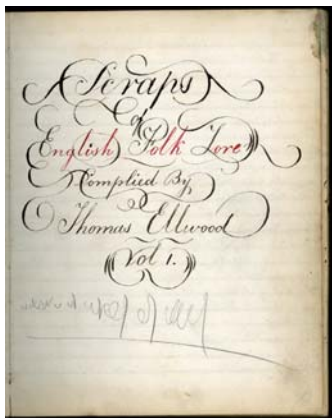 Scraps
of
English Folk Lore
Complied By
Thomas Ellwood
Vol 1.